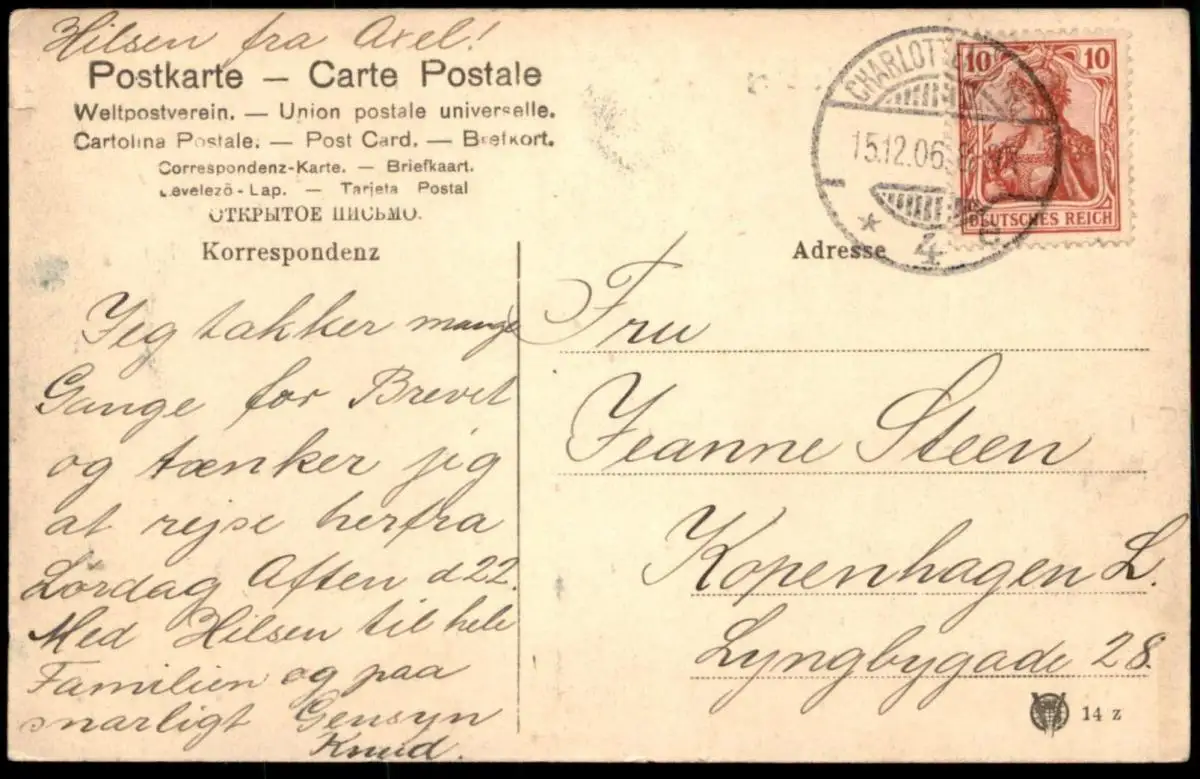 Hilsen fra Axel!
Postkarte – Carte Postale
Weltpostverein. — Union postale universelle.
Cartolina Postale. — Post Card. — Brefkort.
Correspondenz-Karte. — Briefkaart.
Levelezö-Lap. — Tarjeta Postal
ОТКРЫТОЕ ПИСЬМО.
Korrespondenz
Jeg takker mange
Gange for Brevet
og tænker jeg
at rejse herfra
Lørdag Aften d 22.
Med Hilsen til hele
Familien og paa
snarligt Gensyn
Knud.
10 10
DEUTSCHES REICH
15.12.06
* 4 e
Adresse
Fru
Jeanne Steen
Kopenhagen L.
Lyngbygade 28.
14 z